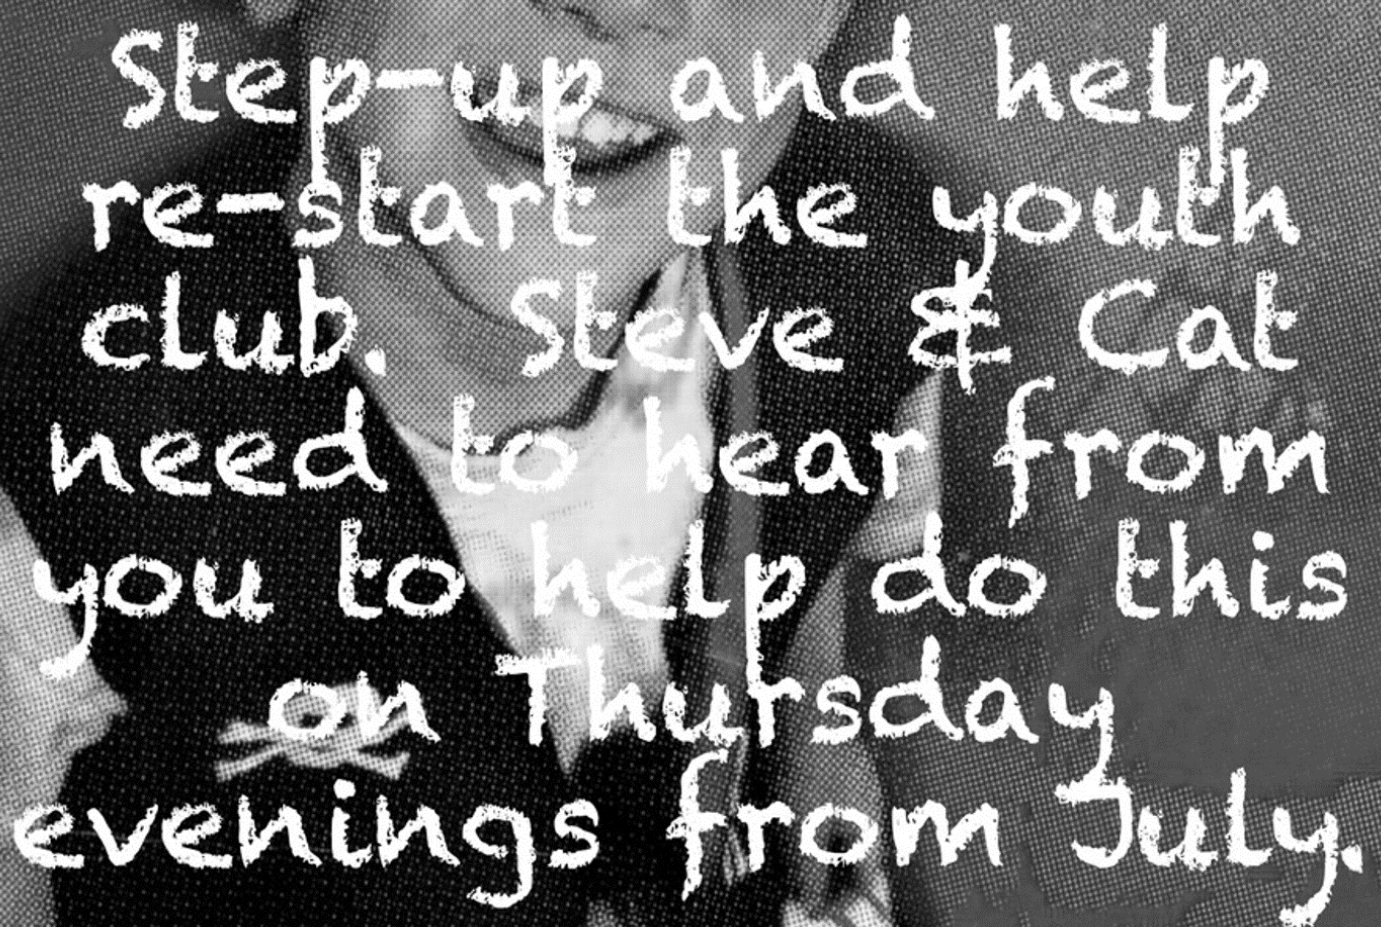 Step-up and help
re-start the youth
club. Steve & Cat
need to hear from
you to help do this
on Thursday
evenings from July.